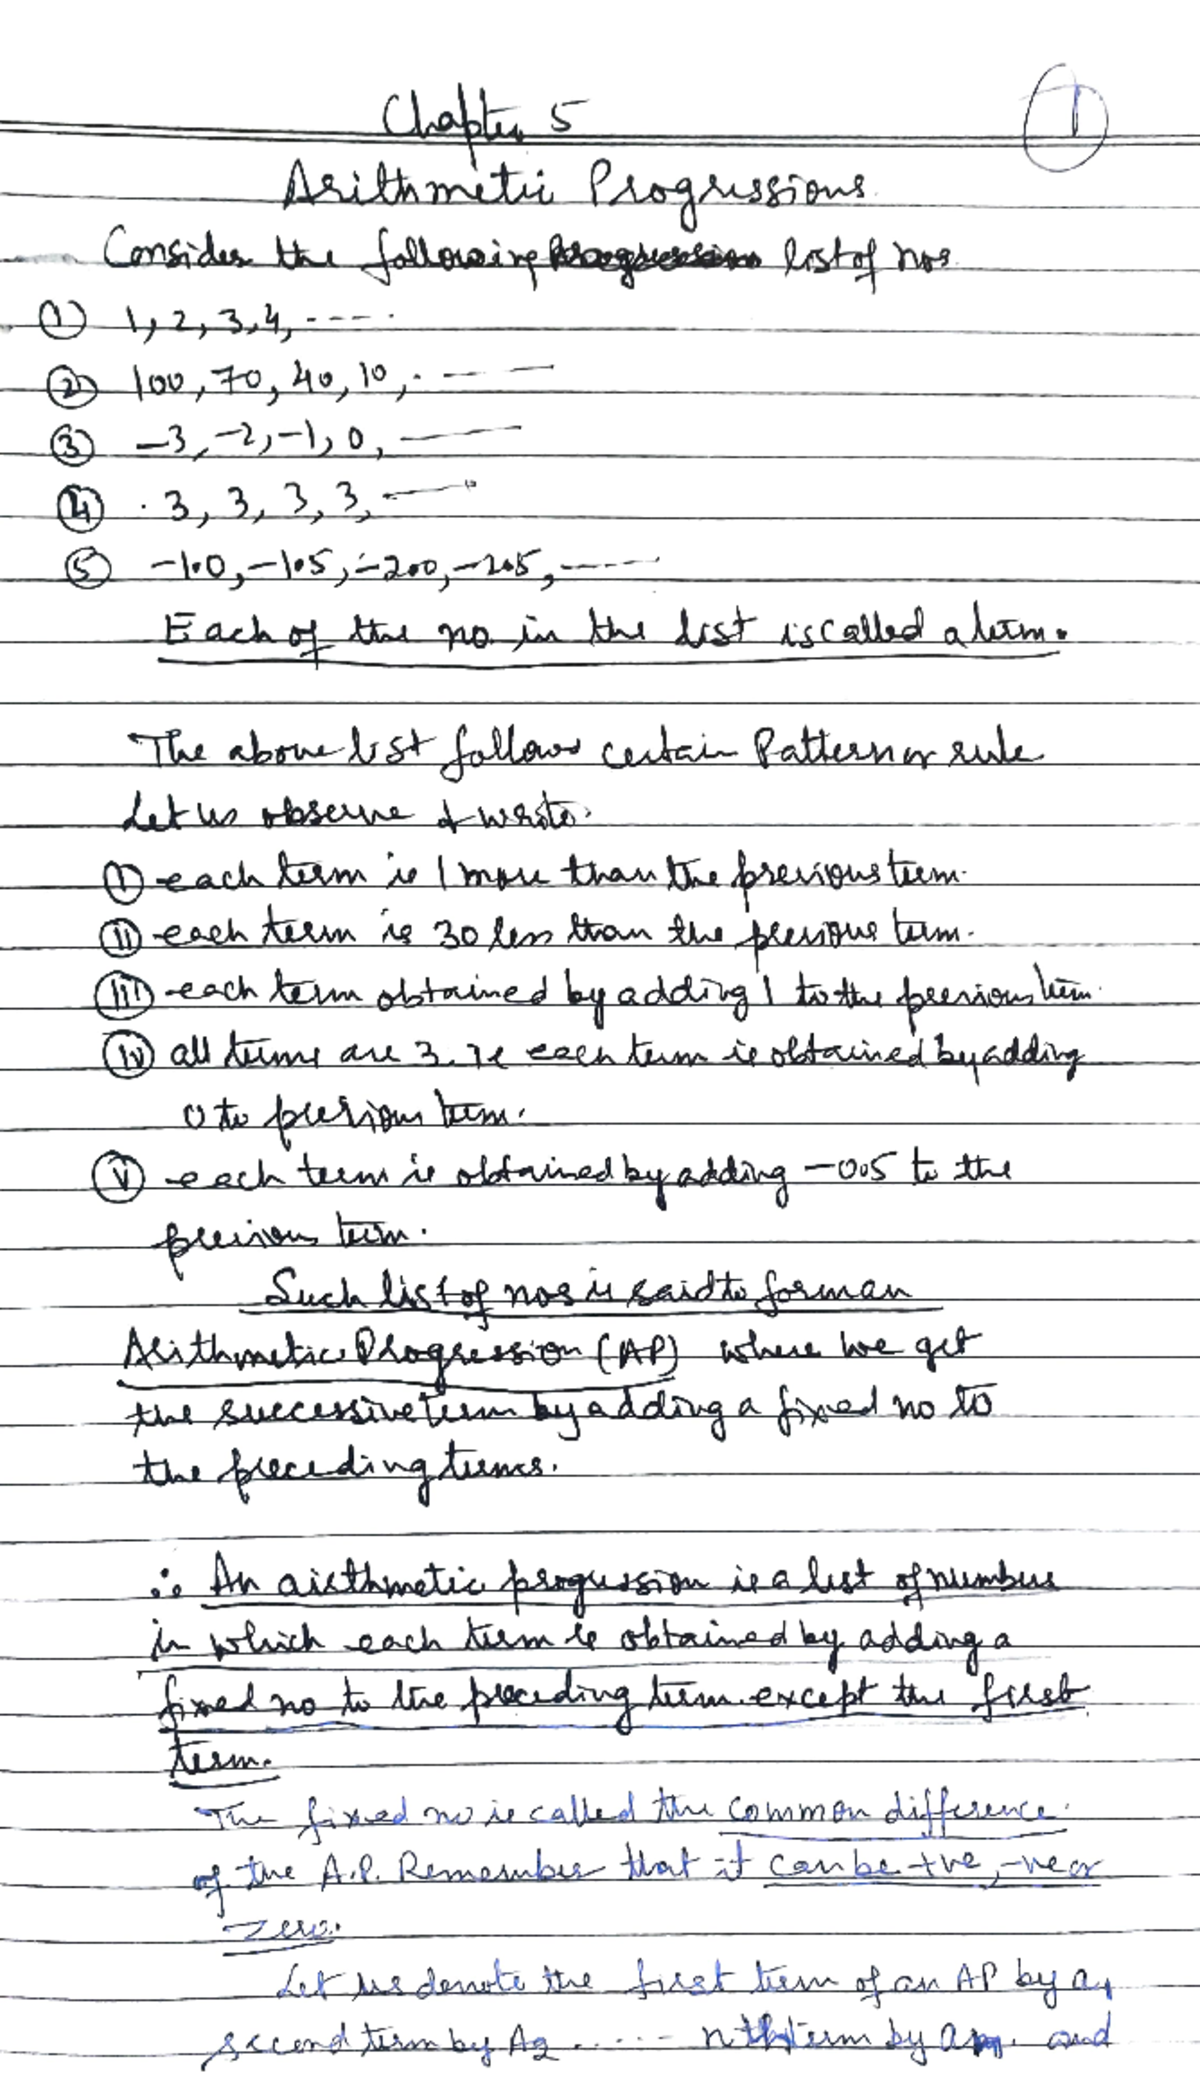 Chapter 5
1
Arithmetic Progressions
Consider the following list of nos
① 1, 2, 3, 4, -----
② 100, 70, 40, 10, . ——
③ -3, -2, -1, 0, ——
④ 3, 3, 3, 3, ——
⑤ -1.0, -1.5, -2.0, -2.5, -----
Each of the no in the list is called a term.
The above list follows certain Pattern or rule
Let us observe & write.
(i) each term is 1 more than the previous term.
(ii) each term is 30 less than the previous term.
(iii) each term obtained by adding 1 to the previous term.
(iv) all terms are 3. ie each term is obtained by adding
0 to previous term.
(v) each term is obtained by adding -0.5 to the
previous term.
Such list of nos is said to form an
Arithmetic Progression (AP) where we get
the successive term by adding a fixed no to
the preceding terms.
∴ An arithmetic progression is a list of numbers
in which each term is obtained by adding a
fixed no to the preceding term except the first
term.
The fixed no is called the common difference.
of the A.P. Remember that it can be +ve, -ve or
zero.
Let us denote the first term of an AP by a₁
second term by A2 ...... nth term by an and